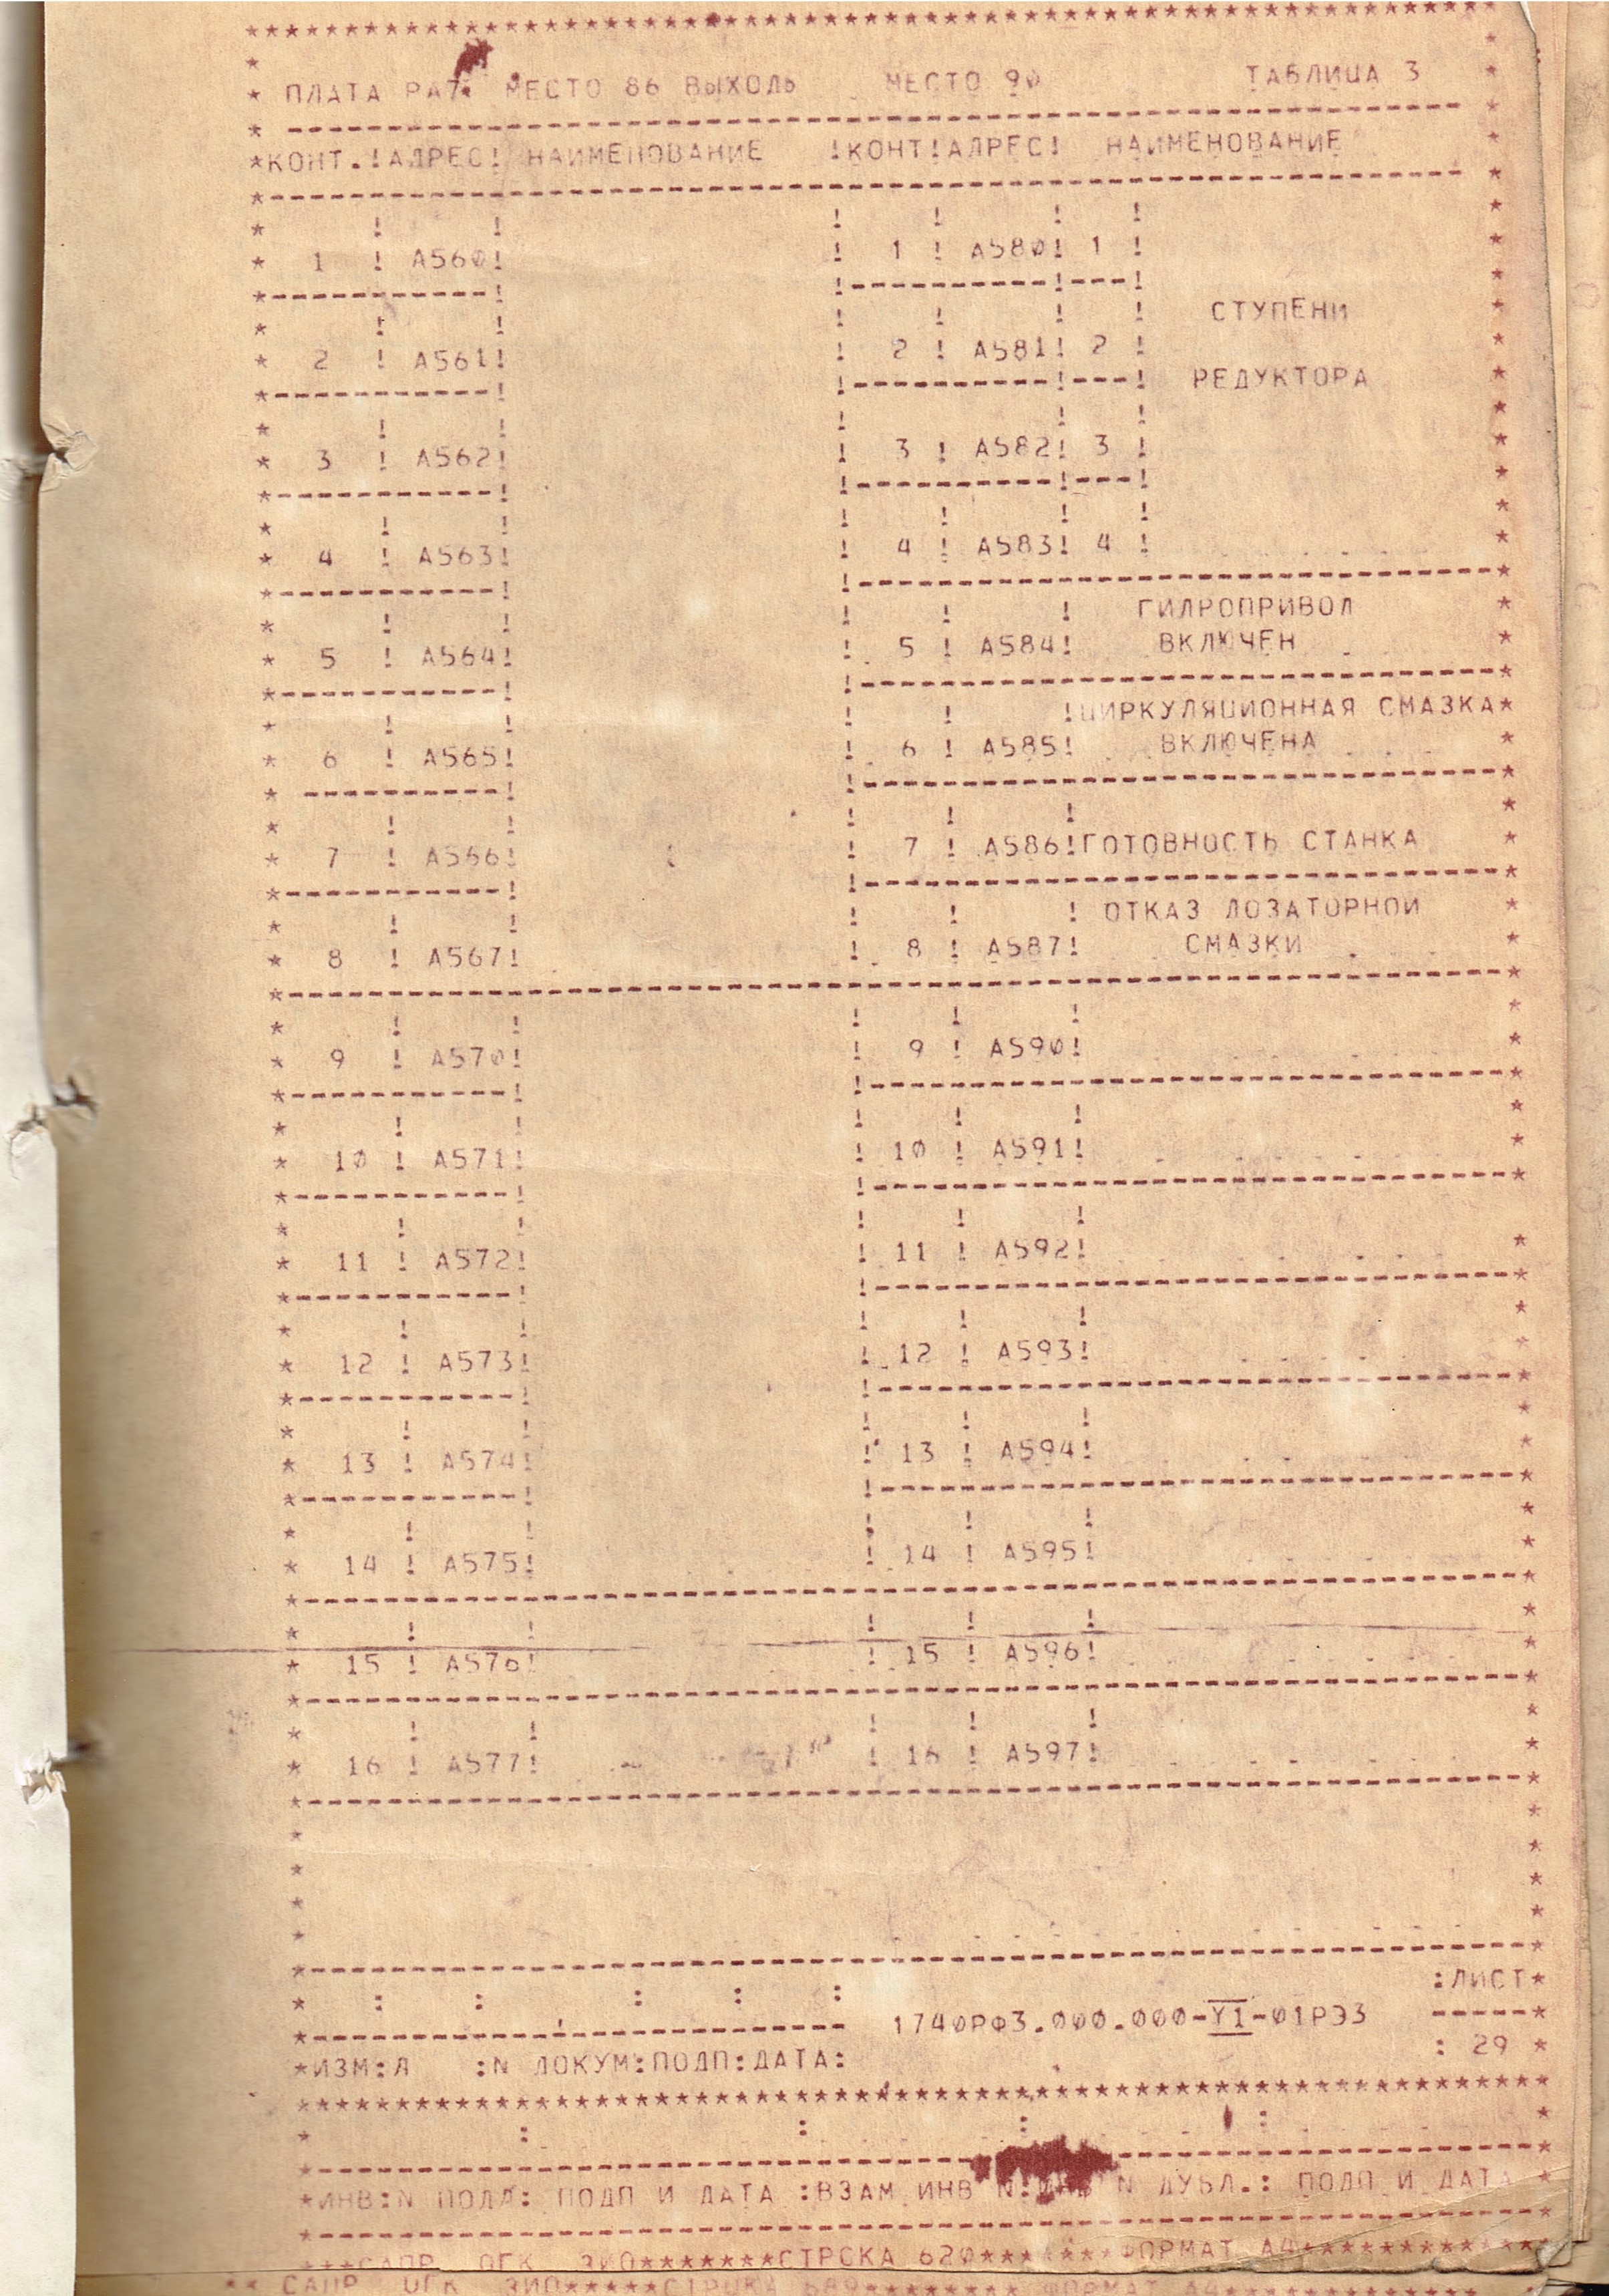 ПЛАТА РА7. МЕСТО 86 ВЫХОДЬ МЕСТО 90 ТАБЛИЦА 3
КОНТ.!АДРЕС! НАИМЕНОВАНИЕ !КОНТ!АДРЕС! НАИМЕНОВАНИЕ
1 ! А560! ! 1 ! А580! 1 !
СТУПЕНИ
2 ! А561! ! 2 ! А581! 2 !
РЕДУКТОРА
3 ! А562! ! 3 ! А582! 3 !
4 ! А563! ! 4 ! А583! 4 !
ГИДРОПРИВОД
5 ! А564! ! 5 ! А584! ВКЛЮЧЕН
!ЦИРКУЛЯЦИОННАЯ СМАЗКА*
6 ! А565! ! 6 ! А585! ВКЛЮЧЕНА
7 ! А566! ! 7 ! А586!ГОТОВНОСТЬ СТАНКА
! ОТКАЗ ДОЗАТОРНОЙ
8 ! А567! ! 8 ! А587! СМАЗКИ
9 ! А570! ! 9 ! А590!
10 ! А571! ! 10 ! А591!
11 ! А572! ! 11 ! А592!
12 ! А573! ! 12 ! А593!
13 ! А574! ! 13 ! А594!
14 ! А575! ! 14 ! А595!
15 ! А576! ! 15 ! А596!
16 ! А577! ! 16 ! А597!
:ЛИСТ*
1740РФ3.000.000-Y1-01РЭ3
: 29 *
*ИЗМ:Л :N ДОКУМ:ПОДП:ДАТА:
*ИНВ:N ПОДЛ: ПОДП И ДАТА :ВЗАМ ИНВ N: N ДУБЛ.: ПОДП И ДАТА *
***САПР ОГК ЗИО*******СТРОКА 620******* ФОРМАТ А4************
** САПР ОГК ЗИО*****СТРОКА 689******** ФОРМАТ А4************